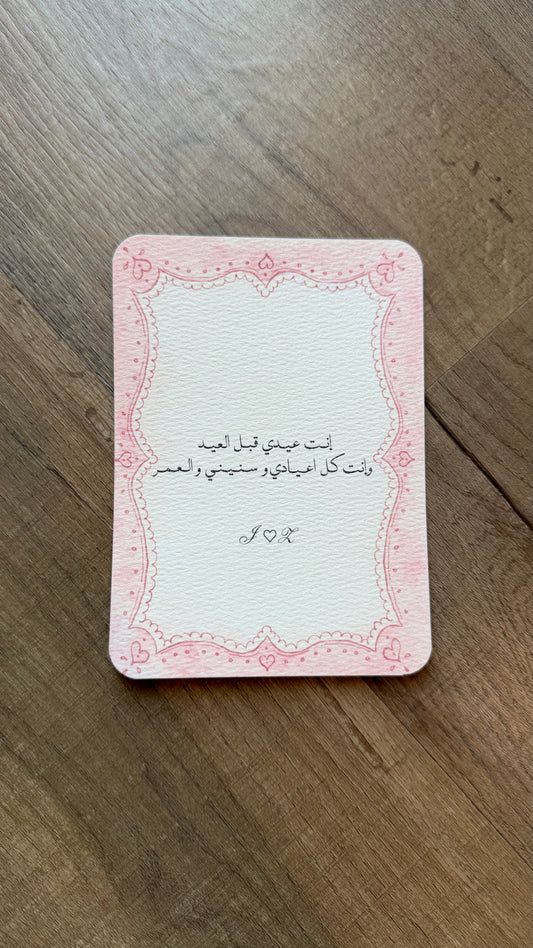 إنت عيدي قبل العيد
وإنت كل اعيادي و سنيني والعمر
J ♡ Z